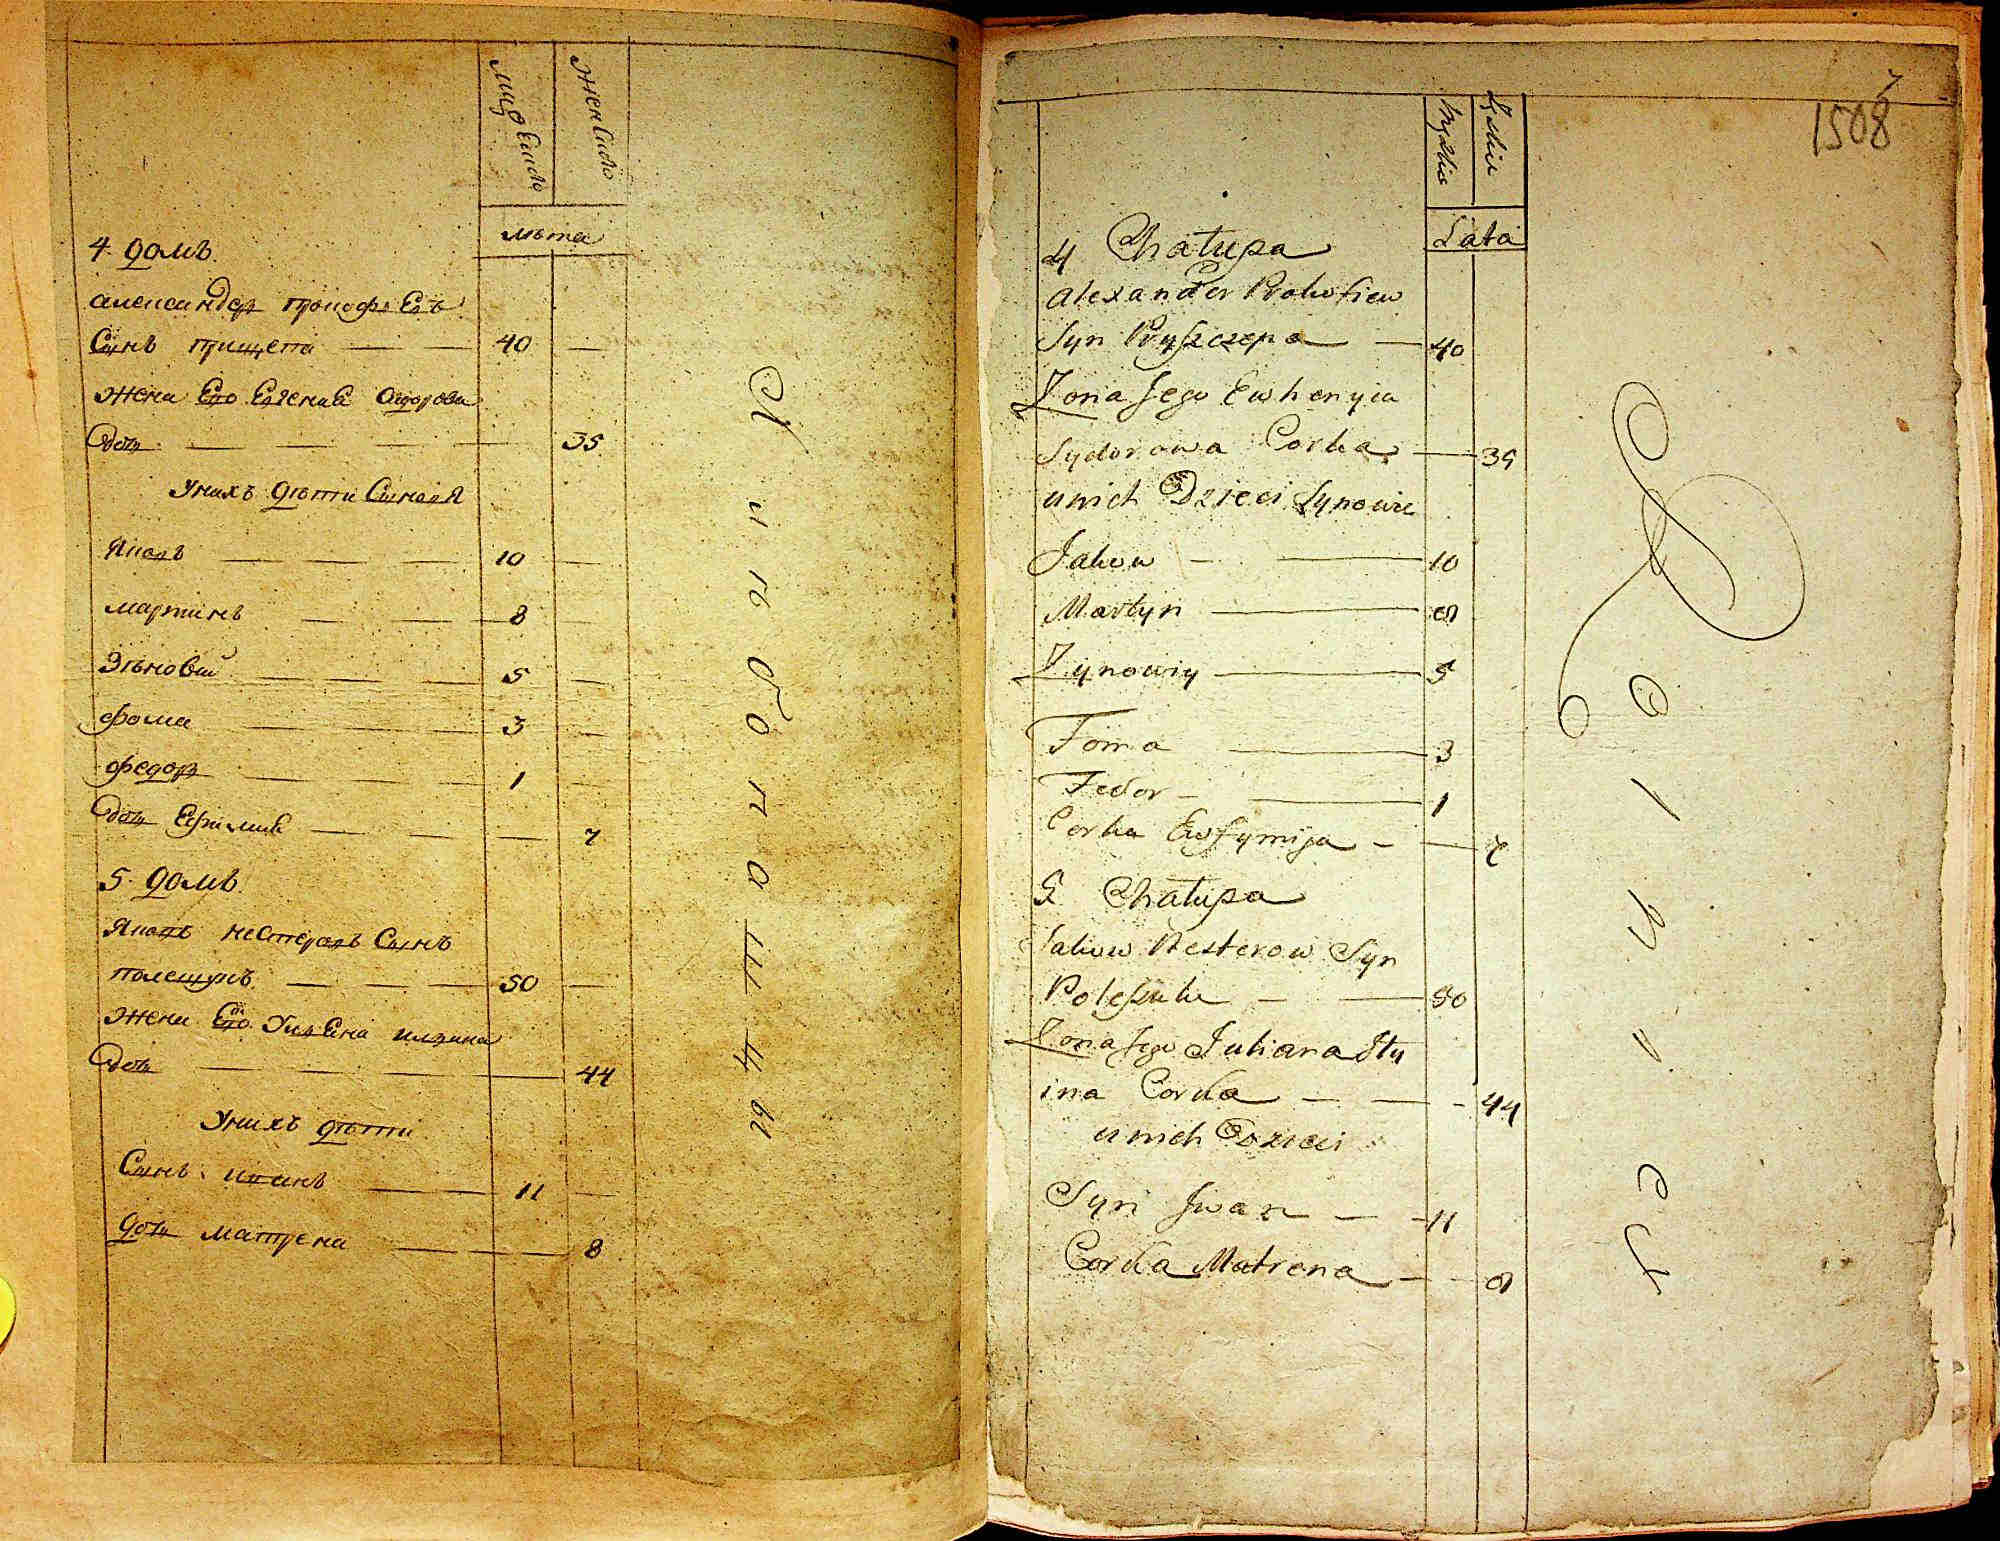 мужеско
женско
лѣта
4. домъ.
александеръ прокофіевъ
Сынъ прищепа 40
жена Его Евгения Сидорова
дочь 35
У нихъ дѣти Сыновя
Яковъ 10
мартинъ 8
Зѣновий 5
фома 3
федоръ 1
дочь Ефимия 7
5. домъ.
Яковъ нестеровъ Сынъ
полещукъ 50
жена Его Ульяна
дочь 44
У нихъ дѣти
Сынъ иванъ 11
дочь матрена 8
Хлѣбопашцы
1508
Męzkie
Zeskie
Lata
4 Chałupa
Alexander Prokofiew
Syn Pryszczepa 40
Zona Jego Ewhenyia
Sydorowa Corka 35
u nich Dzieci Synowie
Jakow 10
Martyn 8
Zynowiy 5
Foma 3
Fedor 1
Corka Ewfymija 7
5 Chałupa
Jakow Nesterow Syn
Poleszuk 50
Zona Jego Juliana Ily
ina Corka 44
u nich Dzieci
Syn Iwan 11
Corka Matrena 8
Rolnicy